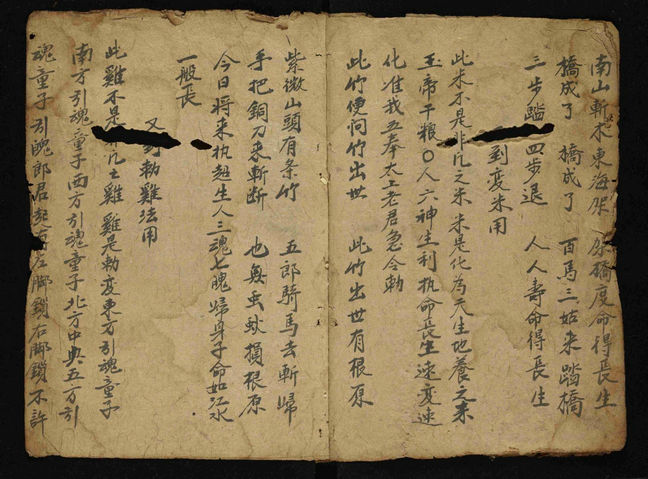 南山斬木東海架 架橋度命得長生
橋成了 橋成了 百馬三姑来踏橋
三步踏 四步退 人人壽命得長生
到变米用
此米不是非凡之米 米是化為天生地養之米
玉帝干粮〇人六神生利执命長生速变速
化准我五奉太上老君急令勅
此竹便问竹出世 此竹出世有根原
紫微山頭有条竹 五郎騎馬去斬歸
手把銅刀来斬断 也無虫蚁損根原
今日将来执超生人三魂七魄歸身子命如江水
一般長
又到勅雞法用
此雞不是非凡之雞 雞是勅变東方引魂童子
南方引魂童子西方引魂童子北方中央五方引
魂童子引醜郎君 左脚鎖右脚鎖不許